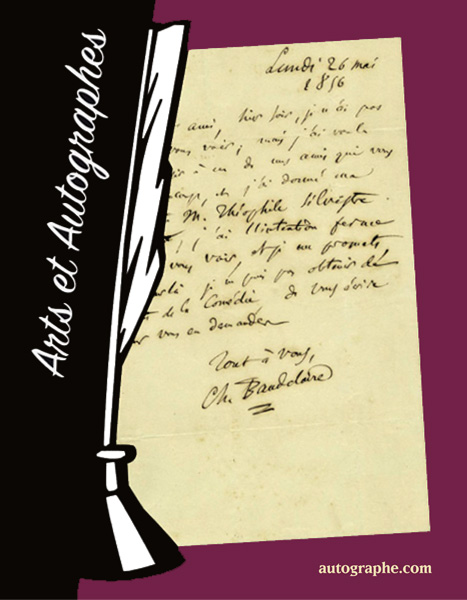 Arts et Autographes
Lundi 26 mai
1856
ami, hier soir, je n'ai pas
vous voir; mais j'ai voulu
à un de mes amis qui vous
et j'ai donné ma
M. Théophile Silvestre.
j'ai l'intention ferme
vous voir, et je me promets
je ne puis pas obtenir de
de la Comédie de vous écrire
vous en demander
Tout à vous,
Ch. Baudelaire
autographe.com